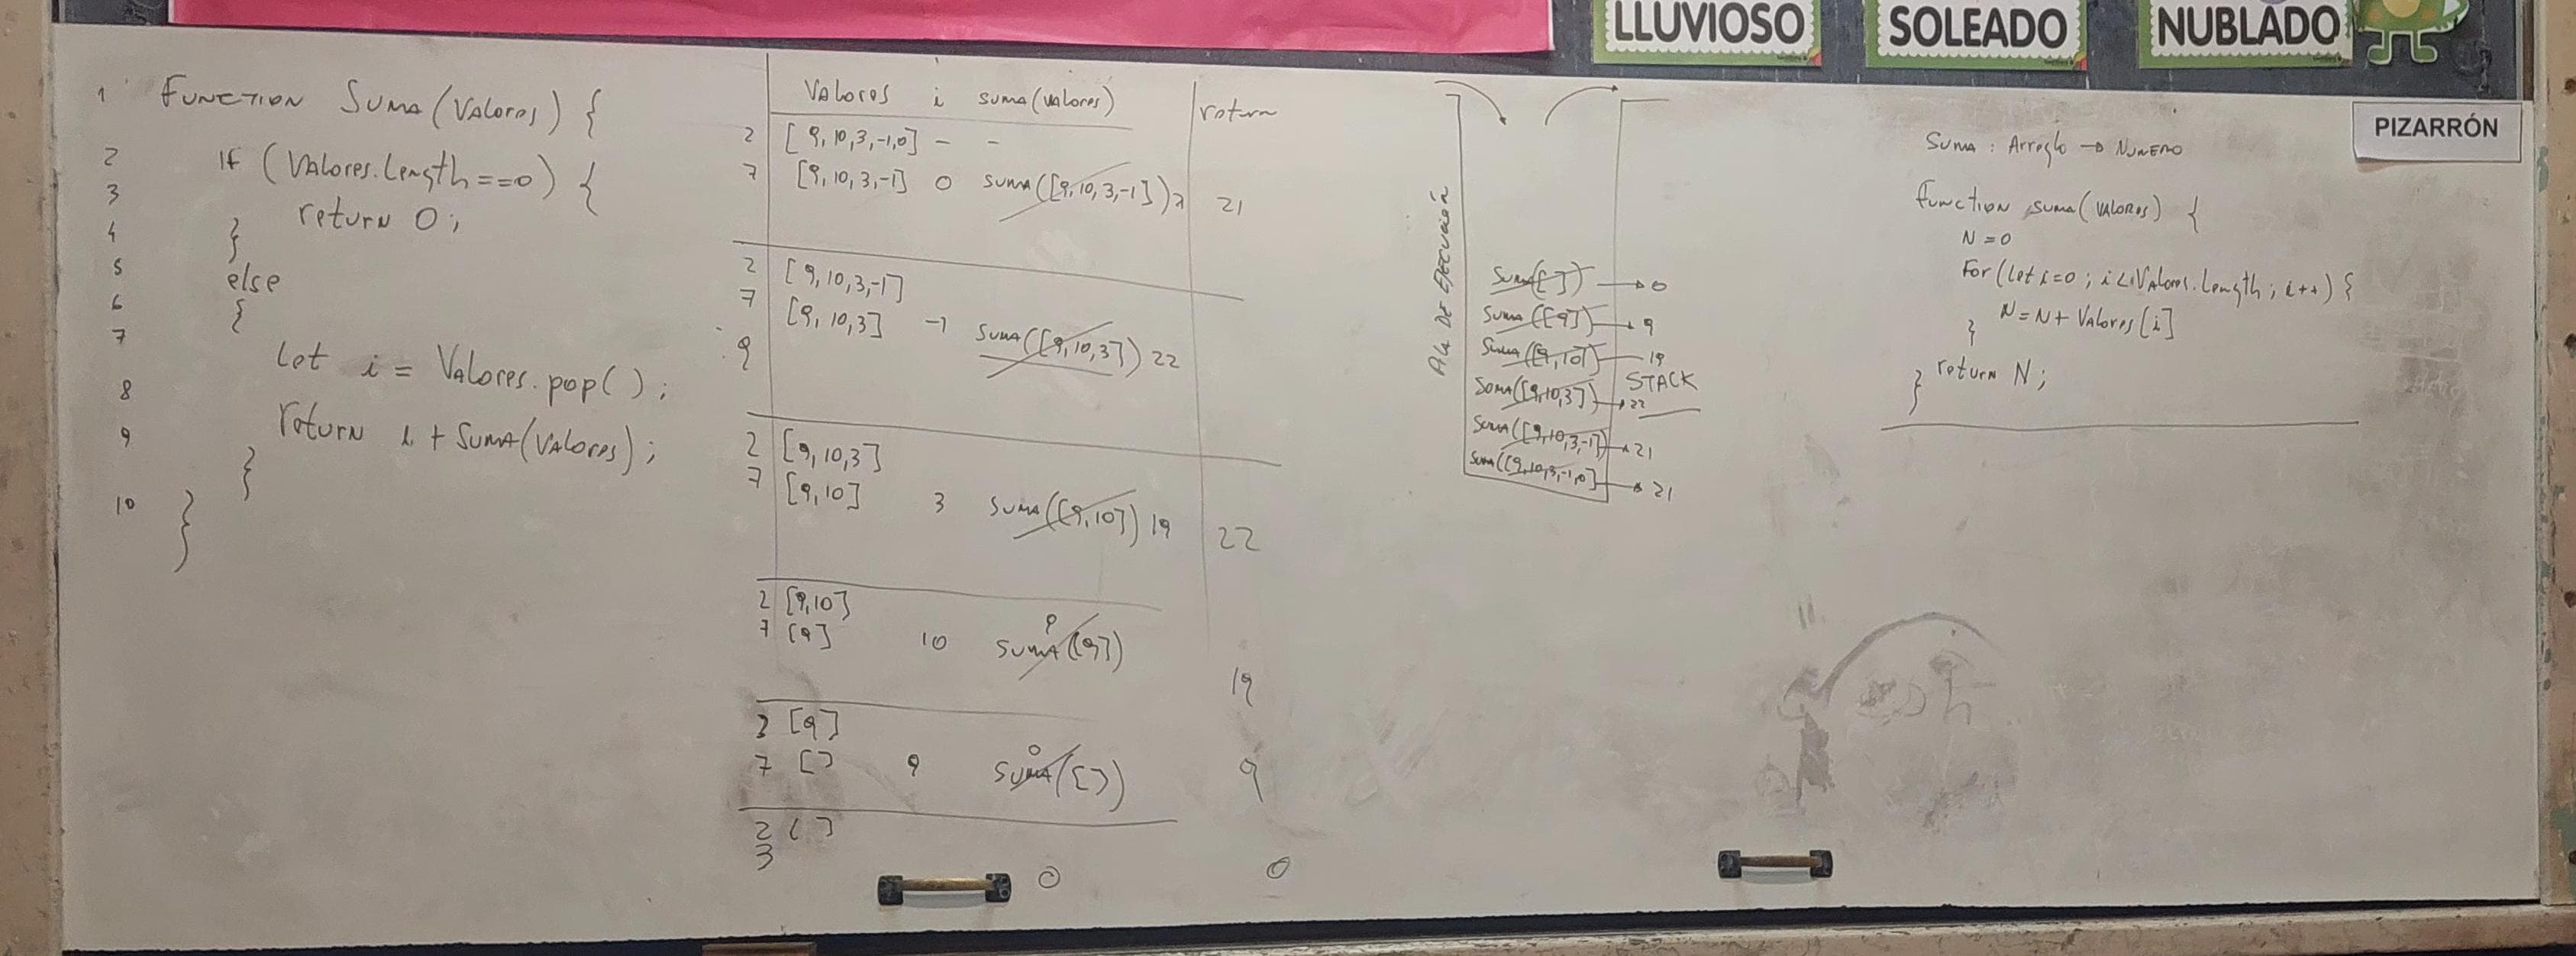 LLUVIOSO
SOLEADO
NUBLADO
PIZARRÓN
1 FUNCTION SUMA(VALORES) {
2 IF (VALORES.Length==0) {
3 return 0;
4 }
5 else
6 {
7 Let i = VALORES.pop();
8 return i + SUMA(VALORES);
9 }
10 }
VALORES i SUMA(VALORES) return
2 [9,10,3,-1,0] - -
7 [9,10,3,-1] 0 SUMA([9,10,3,-1]) 21
2 [9,10,3,-1]
7 [9,10,3] -1 SUMA([9,10,3]) 22
9
2 [9,10,3]
7 [9,10] 3 SUMA([9,10]) 19 22
2 [9,10]
7 [9] 10 SUMA([9]) 9
19
[9]
7 [] 9 SUMA([]) 0 9
2 []
3
0 0
DE EJECUCIÓN
SUMA([]) → 0
SUMA([9]) → 9
SUMA([9,10]) — 19
STACK
SUMA([9,10,3]) → 22
SUMA([9,10,3,-1]) → 21
SUMA([9,10,3,-1,0]) → 21
SUMA : Arreglo → NUMERO
Function SUMA(VALORES) {
N=0
For(Let i=0; i<VALORES.Length; i++) {
N=N+VALORES[i]
}
return N;
}